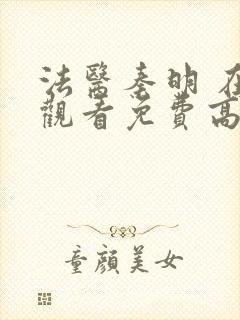 法醫秦明 在
觀看免費高
童顏美女